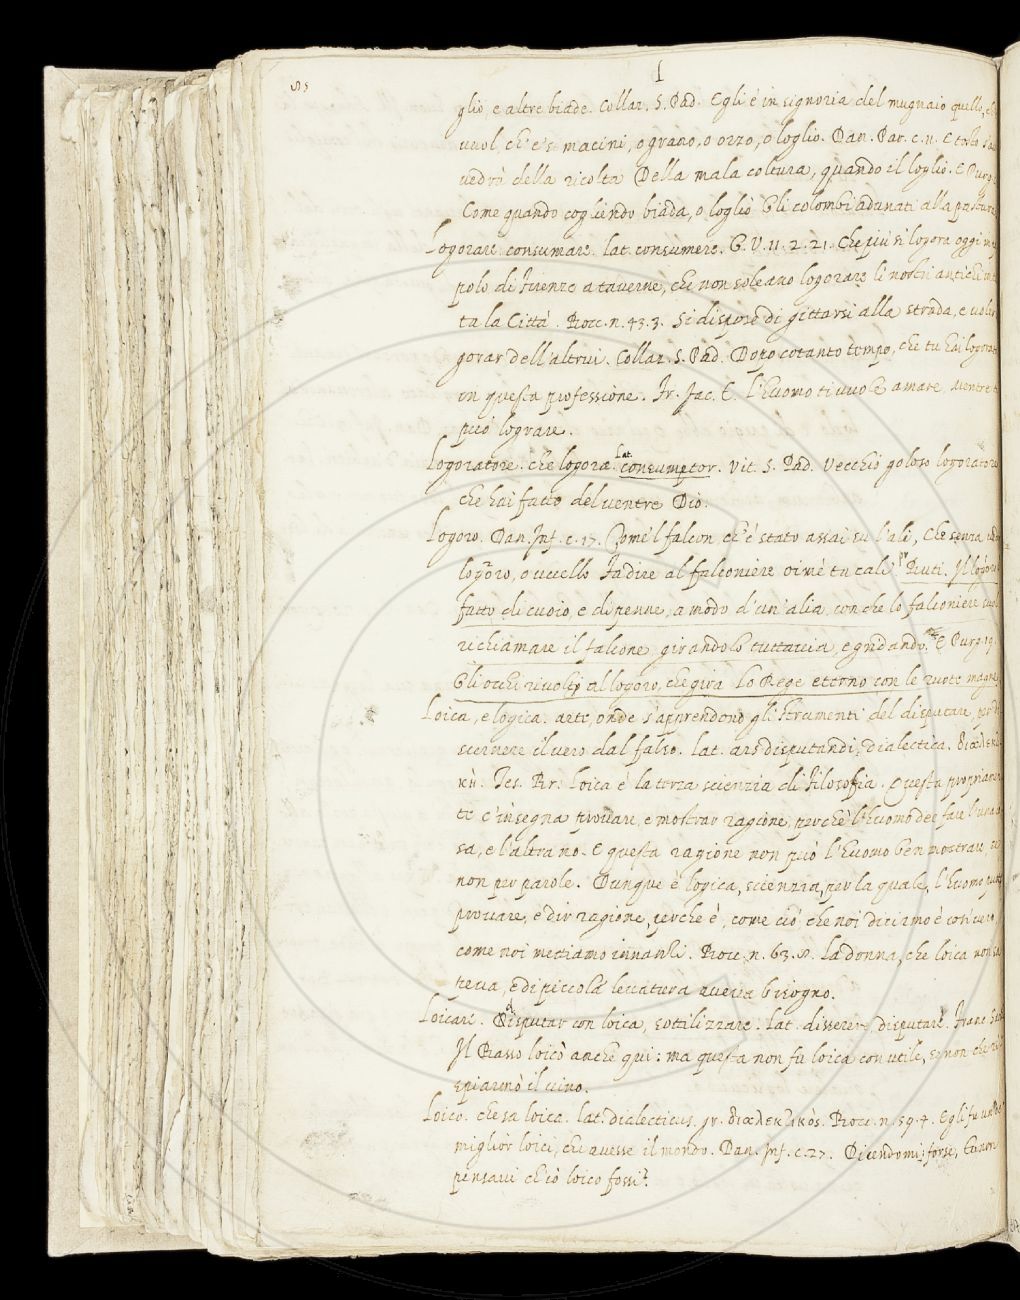 85
l
glio, e altre biade. Collaz. S. Pad. Egli è in signoria del mugnaio quello, che
vuol, ch'e' si macini, o grano, o orzo, o loglio. Dan. Par. c. 11. E tosto s'au
vedrà della ricolta Della mala coltura, quando il loglio. E Purg.
Come quando cogliendo biada, o loglio Gli colombi adunati alla pastura
Logorare. consumare. lat. consumere. G. V. 11. 2. 21. Che più si logora oggi in
polo di Firenze a taverne, che non soleano logorare li nostri antichi
ta la Città. Bocc. n. 43. 3. Si dispose di gittarsi alla strada, e voler
gorar dell'altrui. Collaz. S. Pad. Dopo cotanto tempo, che tu hai logorato
in questa professione. Fr. Jac. T. L'huomo ti vuole amare, mentre
può lograre.
Logoratore. che logora. Lat. consumptor. Vit. S. Pad. Vecchio goloso logoratore
che hai fatto del ventre Dio.
Logoro. Dan. Inf. c. 17. Come'l falcon, ch'è stato assai su l'ali, Che senza veder
logoro, o uccello Fa dire al falconiere oimè tu cali Buti. Il logoro
fatto di cuoio, e di penne, a modo d'un'alia, con che lo falconiere suol
richiamare il falcone girandolo tuttavia, e gridando. E Purg. 19.
Gli occhi rivolgi al logoro, che gira Lo Rege eterno con le ruote magne
Loica, e logica. arte, onde s'apprendono gli strumenti del disputare, per di
scernere il vero dal falso. lat. ars disputandi, dialectica. διαλεκτι
κὴ. Tes. Br. Loica è la terza scienzia di filosofia. Questa propriamen
te c'insegna provare, e mostrar ragione, perchè l'huomo dee fare l'una co
sa, e l'altra no. E questa ragione non può l'huomo ben mostrare, se
non per parole. Dunque è logica, scienzia, per la quale, l'huomo può
provare, e dir ragione, perchè è, come ciò che noi diciamo è così vero,
come noi mettiamo innanzi. Bocc. n. 63. 8. La donna, che loica non sa
peva, e di piccola levatura aveva bisogno.
Loicare. Disputar con loica, sottilizzare. Lat. disserere, disputare. Franc. Sacch.
Il Basso loicò anche qui: ma questa non fu loica con utile, se non che ri
sparmiò il vino.
Loico. che sa loica. lat. dialecticus. gr. διαλεκτικὸς. Bocc. n. 59. 4. Egli fu un de'
miglior loici, che avesse il mondo. Dan. Inf. c. 27. Dicendomi: forse, tu non
pensavi ch'io loico fossi.